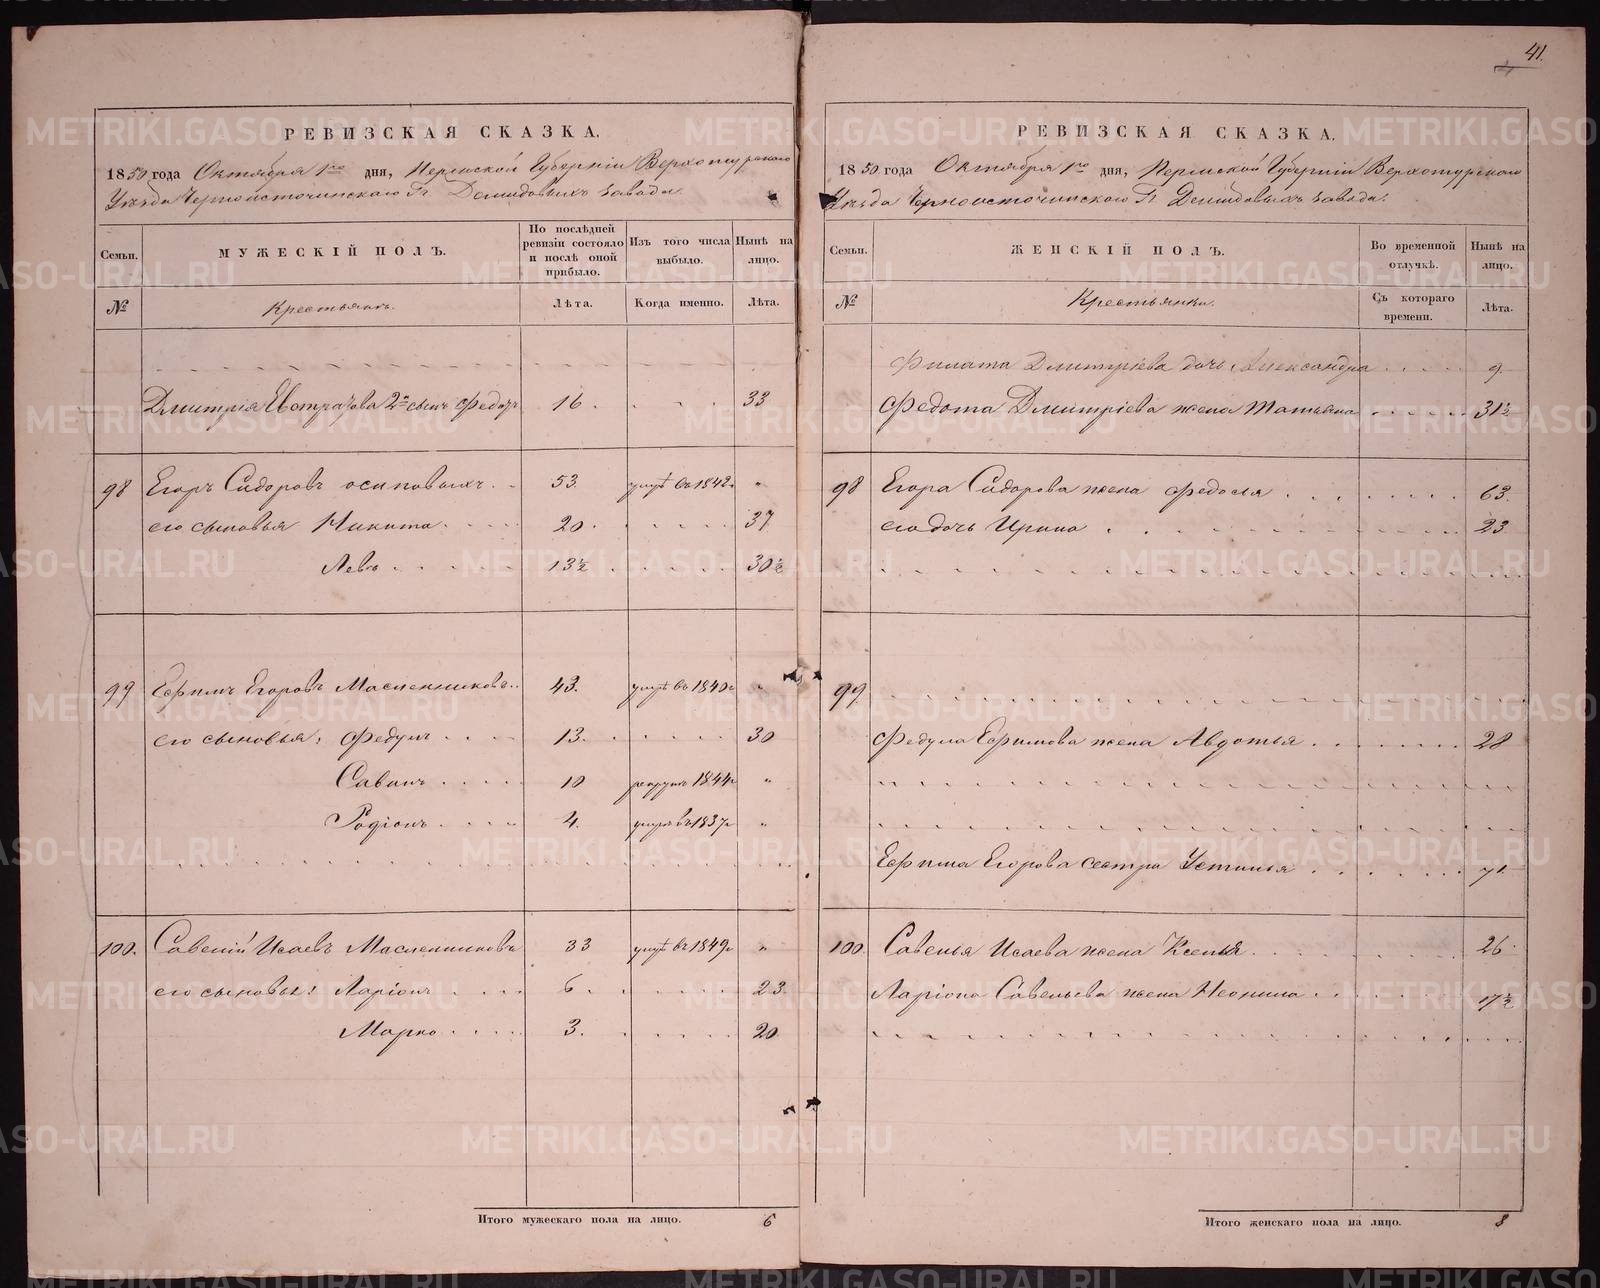 41.
РЕВИЗСКАЯ СКАЗКА.
1850 года Октября 1го дня, Пермской Губерніи Верхотурскаго
Уѣзда Черноисточинскаго Гг. Демидовыхъ завода.
Семьи. МУЖЕСКІЙ ПОЛЪ. По послѣдней ревизіи состояло и послѣ оной прибыло. Изъ того числа выбыло. Нынѣ на лицо.
№ Крестьянъ. Лѣта. Когда именно. Лѣта.
Дмитрія Евстратова 2й сынъ Федотъ 16 . . . . 33
98 Егоръ Сидоровъ Осиповыхъ . . 53. умрѣ въ 1842г "
его сыновья Никита . . . . 20 . . . . . 37
Левъ . . . . . 13½ . . . . . 30½
99 Ефимъ Егоровъ Масленниковъ . . 43. умрѣ въ 1840г "
его сыновья: Федулъ . . . . 13. . . . . . 30
Саваnъ . . . . 10 рекрутъ 1844г "
Родіонъ . . . . 4. умеръ въ 1837г "
100. Савелій Исаевъ Масленниковъ 33 умрѣ въ 1849г "
его сыновья: Ларіонъ . . . . 6 . . . . . 23.
Марко . . . . 3. . . . . . 20
Итого мужескаго пола на лицо. 6
РЕВИЗСКАЯ СКАЗКА.
1850. года Октября 1го дня, Пермской Губерніи Верхотурскаго
Уѣзда Черноисточинскаго Гг. Демидовыхъ завода.
Семьи. ЖЕНСКІЙ ПОЛЪ. Во временной отлучкѣ. Нынѣ на лицо.
№ Крестьянки. Съ котораго времени. Лѣта.
Филата Дмитріева дочь Александра . . . . 9.
Федота Дмитріева жена Татьяна . . . . . 31½
98 Егора Сидорова жена Федосья . . . . . . . 63.
его дочь Ирина . . . . . . . 23
99.
Федула Ефимова жена Авдотья . . . . . . . 28
Ефима Егорова сестра Устинья . . . . . . 71.
100. Савелья Исаева жена Ксенья . . . . . . . 26.
Ларіона Савельева жена Неонила . . . . . . 17½
Итого женскаго пола на лицо. 8
METRIKI.GASO-URAL.RU